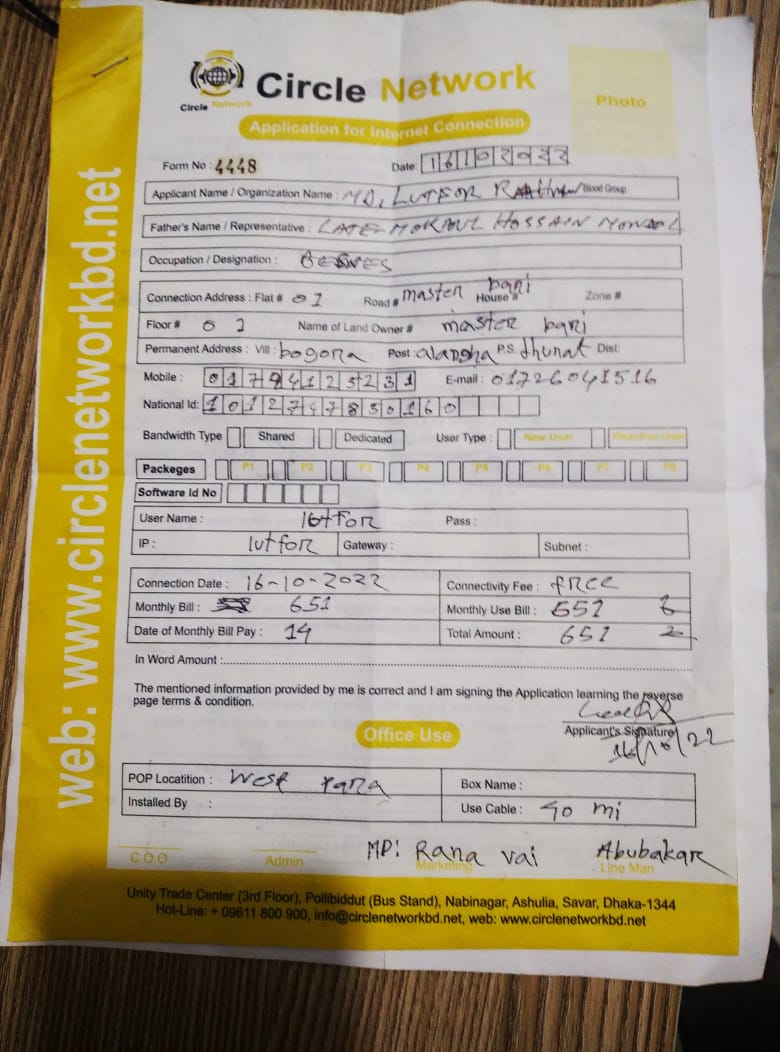 Circle Network
Circle Network
Application for Internet Connection
Photo
web: www.circlenetworkbd.net
Form No : 4448 Date: 16102022
Applicant Name / Organization Name : MD, LUTFOR Blood Group:
Father's Name / Representative : LATE- HOSSAIN
Occupation / Designation :
Connection Address : Flat # 01 Road # master bari House # Zone #
Floor # 01 Name of Land Owner # master bari
Permanent Address : Vill : bogora Post : P.S. dhunat Dist:
Mobile : E-mail : 01726041516
National Id:
Bandwidth Type Shared Dedicated User Type : New User Reactive User
Packeges P1 P2 P3 P4 P5 P6 P7 P8
Software Id No
User Name : lutfor Pass :
IP : lutfor Gateway : Subnet :
Connection Date : 16-10-2022 Connectivity Fee : free
Monthly Bill : 651 Monthly Use Bill :
Date of Monthly Bill Pay : 14 Total Amount : 651
In Word Amount :
The mentioned information provided by me is correct and I am signing the Application learning the reverse
page terms & condition.
Applicant's Signature
16/10/22
Office Use
POP Locatition : West para Box Name :
Installed By : Use Cable : 40 mi
C.O.O Admin MD: Rana vai Marketing Abubakar Line Man
Unity Trade Center (3rd Floor), Pollibiddut (Bus Stand), Nabinagar, Ashulia, Savar, Dhaka-1344
Hot-Line: + 09611 800 900, info@circlenetworkbd.net, web: www.circlenetworkbd.net